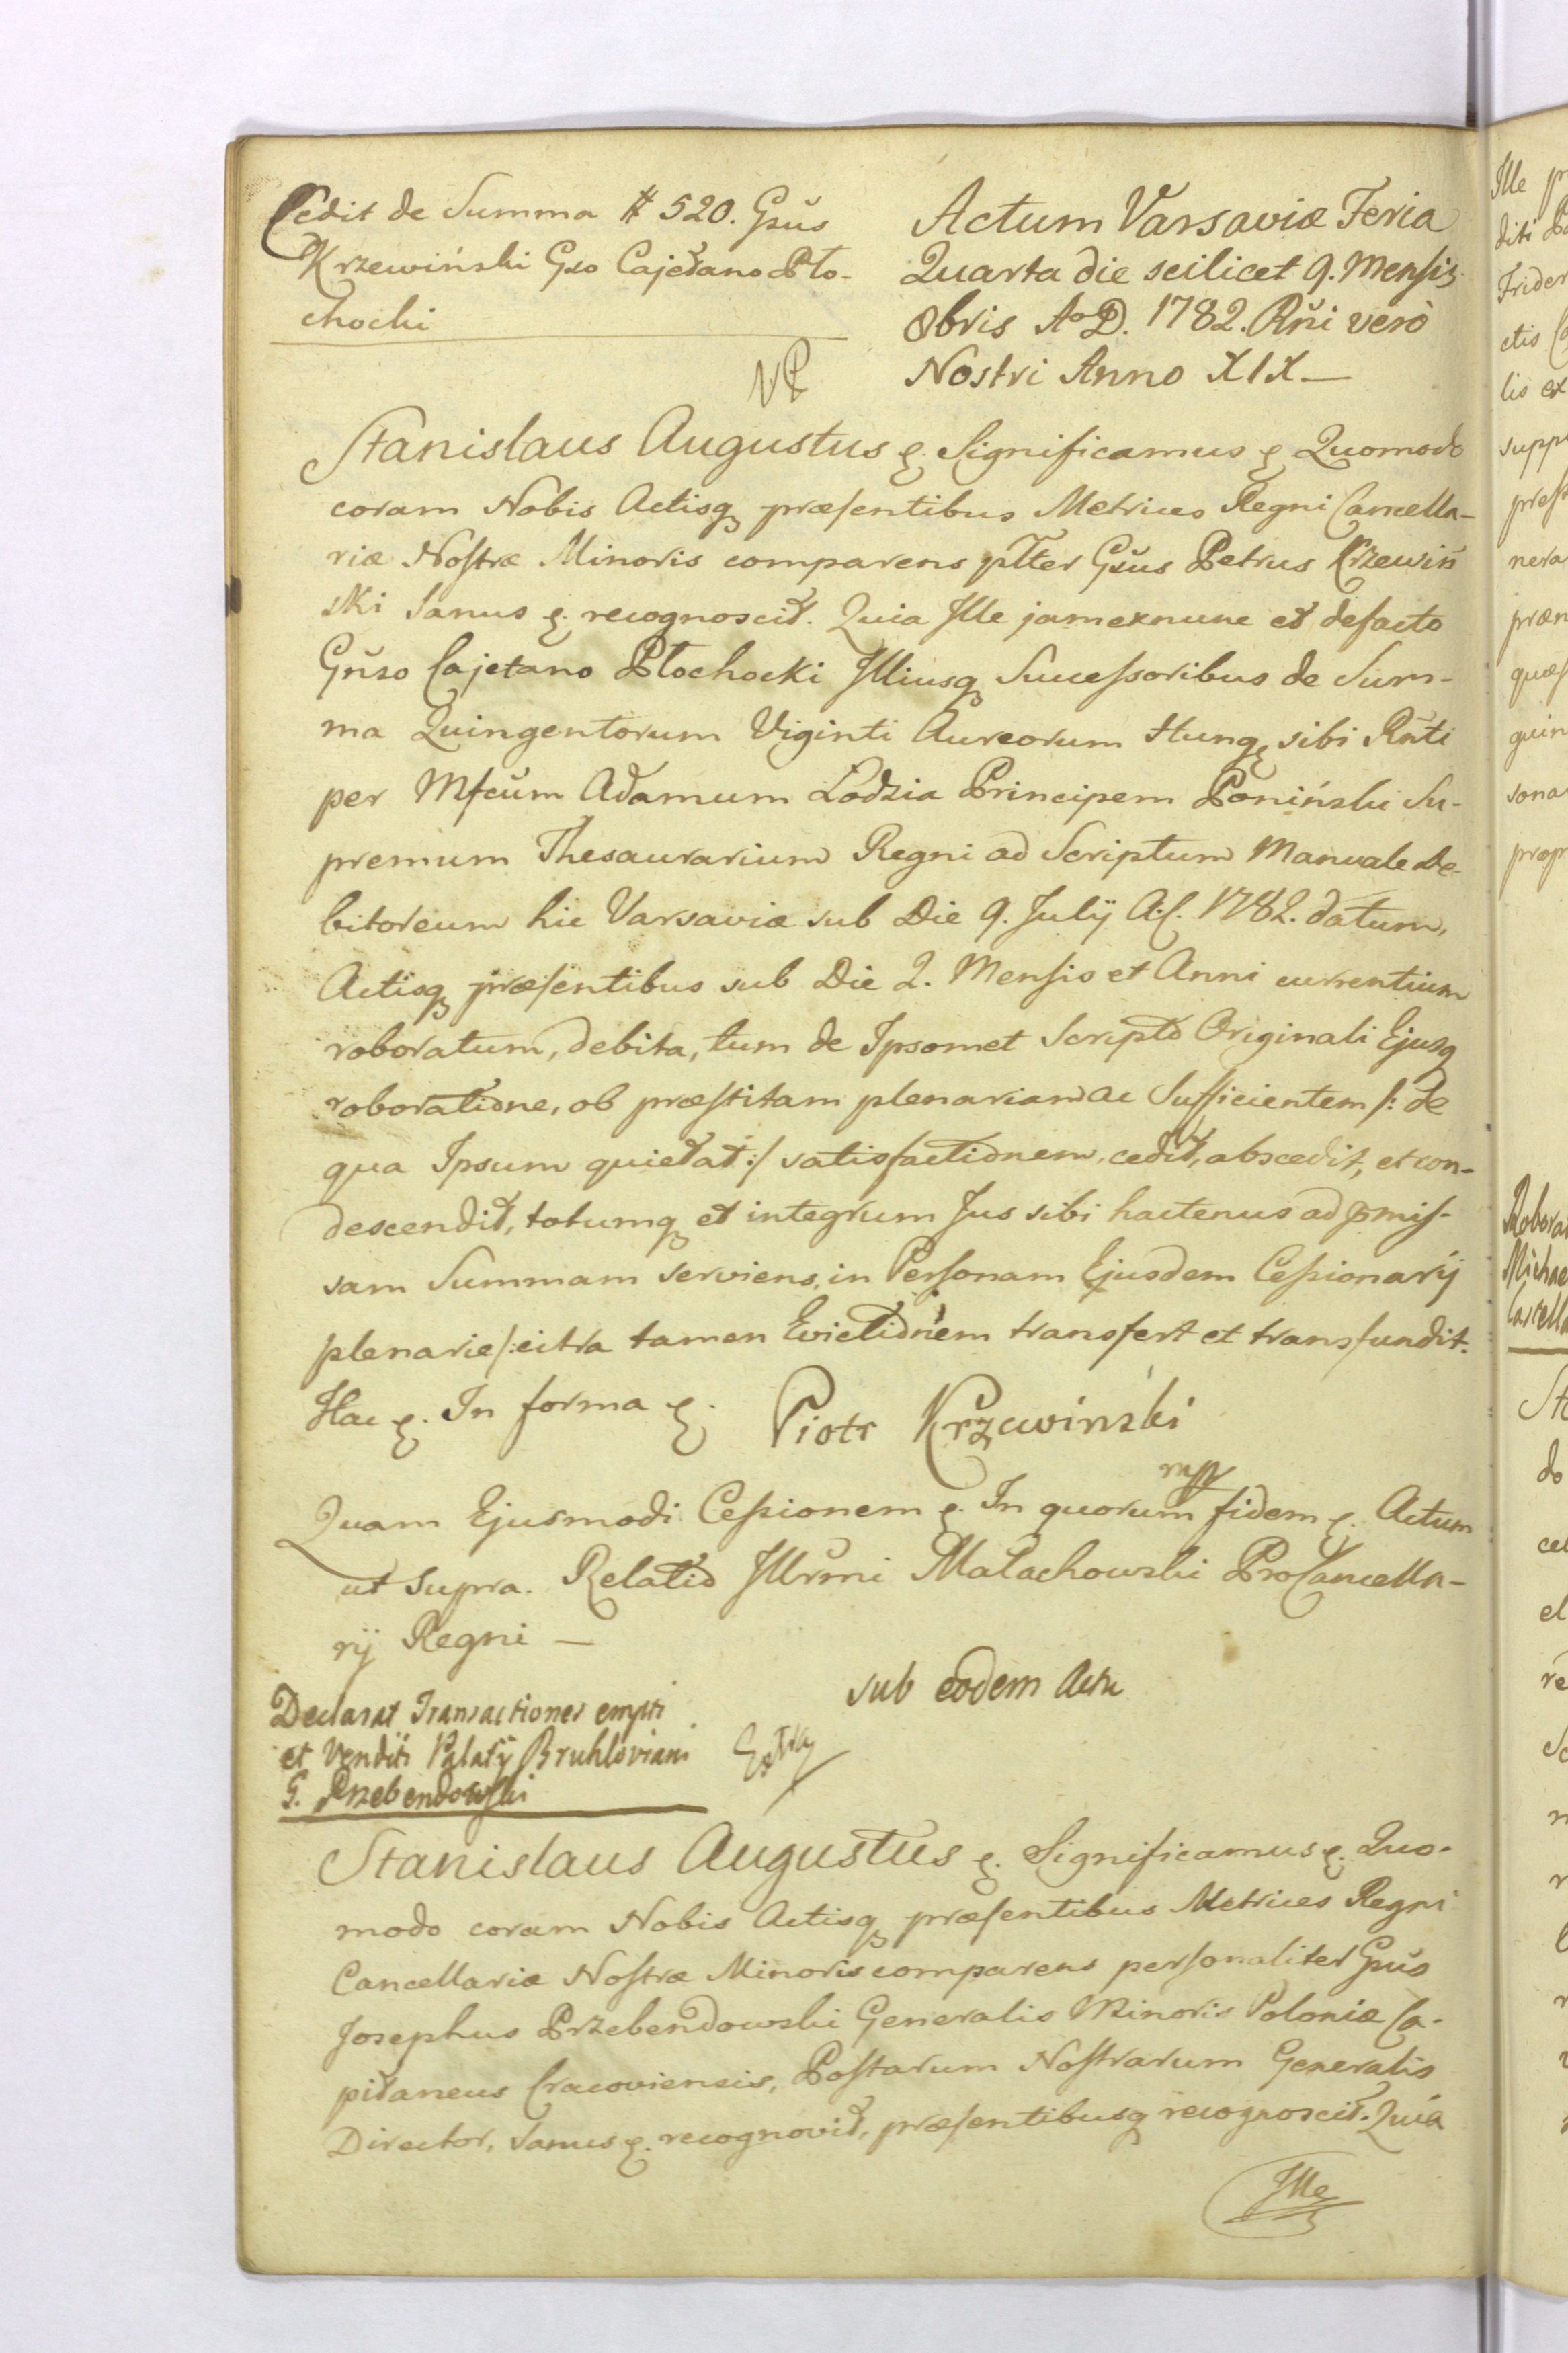 Cedit de Summa # 520. Gsus
Krzewiński Gso Cajetano Pło-
chocki
Actum Varsaviæ Feria
Quarta die scilicet 9. Mensis
8bris Ao D. 1782. Rñi verò
Nostri Anno XIX —
Stanislaus Augustus &. Significamus & Quomodo
coram Nobis Actisq præsentibus Metrices Regni Cancella-
riæ Nostræ Minoris comparens pltter Gsus Petrus Krzewiń
ski Sanus &. recognoscit. Quia Ille jamexnunc et defacto
Gnso Cajetano Płochocki Illiusq Successoribus de Sum-
ma Quingentorum Viginti Aureorum Hung. sibi Rñti
per Mfcum Adamum Lodzia Principem Poniński Su-
premum Thesaurarium Regni ad Scriptum Manuale De-
bitoreum hic Varsaviæ sub Die 9. Julÿ A:C. 1782. datum,
Actisq præsentibus sub Die 2. Mensis et Anni currentium
roboratum, debita, tum de Ipsomet Scripto Originali Ejusq
roboratione, ob præstitam plenariam ac Sufficientem /: de
qua Ipsum quietat :/ satisfactionem, cedit, abscedit, et con-
descendit, totumq et integrum Jus sibi hactenus ad pmis-
sam Summam serviens, in Personam Ejusdem Cessionarÿ
plenarie /: citra tamen Evictionem transfert et transfundit.
Hac &. In forma &.
Piotr Krzewiński
mpp
Quam Ejusmodi Cessionem &. In quorum fidem &. Actum
ut Supra. Relatio Illrmi Małachowski ProCancella-
rÿ Regni —
sub eodem Actu
Declarat Transactiones empti
et Venditi Palatÿ Bruhloviani
G. Przebendowski
Extra
Stanislaus Augustus &. Significamus &. Quo-
modo coram Nobis Actisq præsentibus Metrices Regni
Cancellariæ Nostræ Minoris comparens personaliter Gsus
Josephus Przebendowski Generalis Minoris Poloniæ Ca-
pitaneus Cracoviensis, Postarum Nostrarum Generalis
Director, Sanus &. recognovit, præsentibusq recognoscit. Quia
Ille